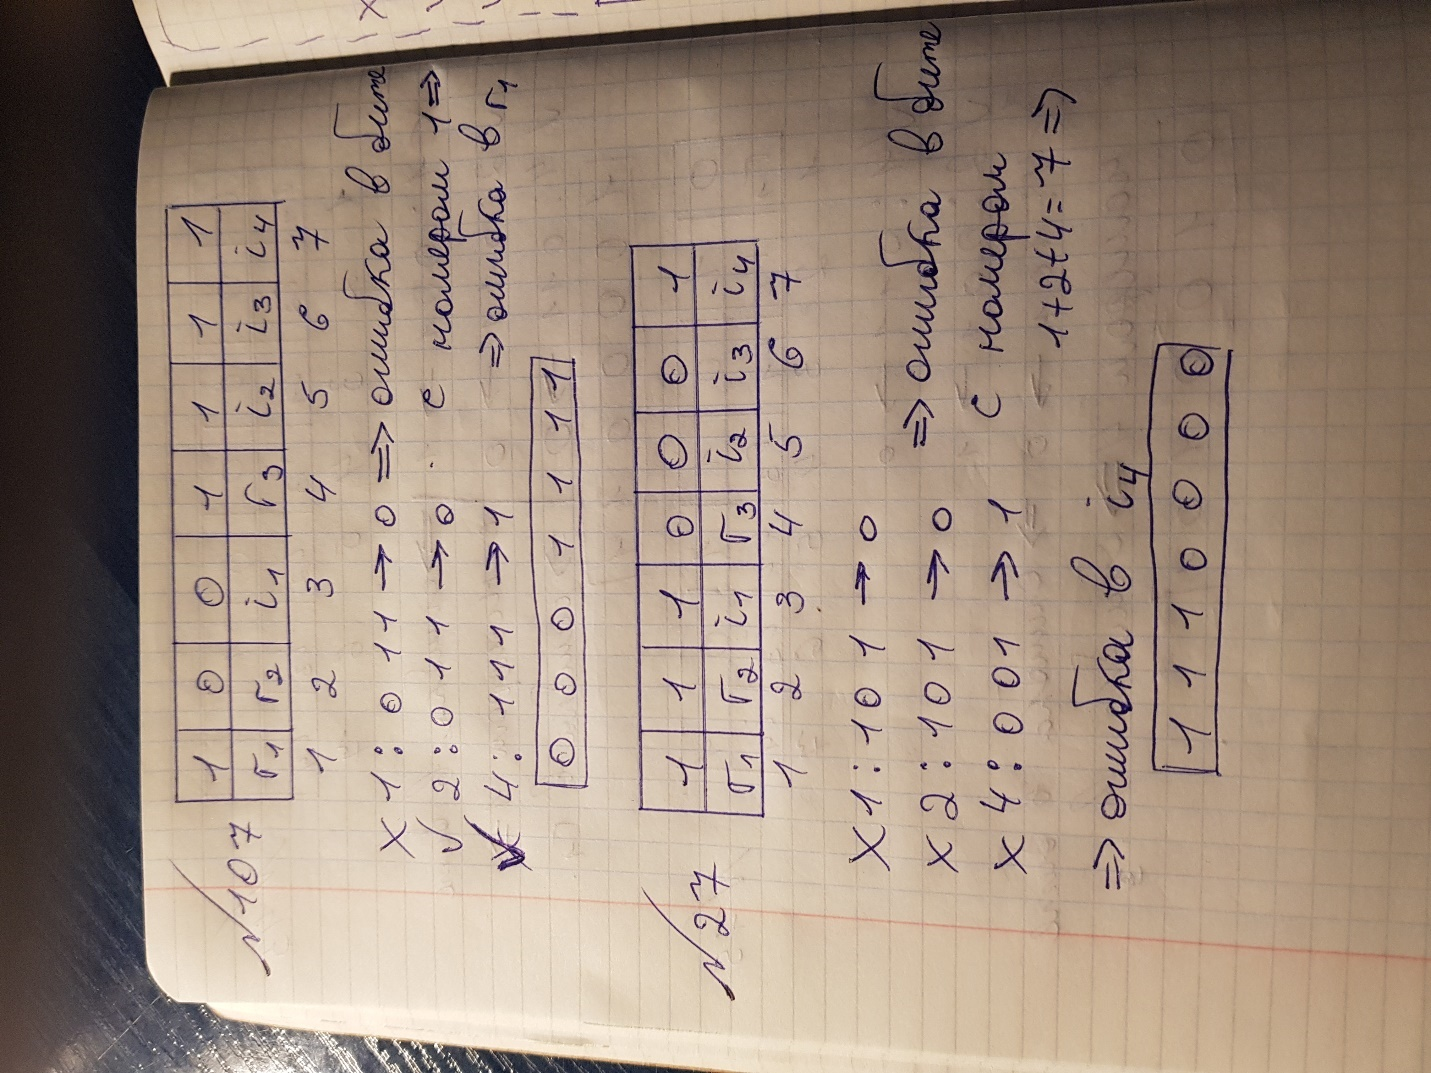 №107
1 0 0 1 1 1 1
r1 r2 i1 r3 i2 i3 i4
1 2 3 4 5 6 7
X 1: 0 1 1 → 0 => ошибка в бите
√ 2: 0 1 1 → 0 с номером 1 =>
√ 4: 1 1 1 → 1 => ошибка в r1
0 0 0 1 1 1 1
№27
1 1 1 0 0 0 1
r1 r2 i1 r3 i2 i3 i4
1 2 3 4 5 6 7
X 1: 1 0 1 → 0
X 2: 1 0 1 → 0 => ошибка в бите
X 4: 0 0 1 → 1 с номером
1+2+4=7 =>
=> ошибка в i4
1 1 1 0 0 0 0